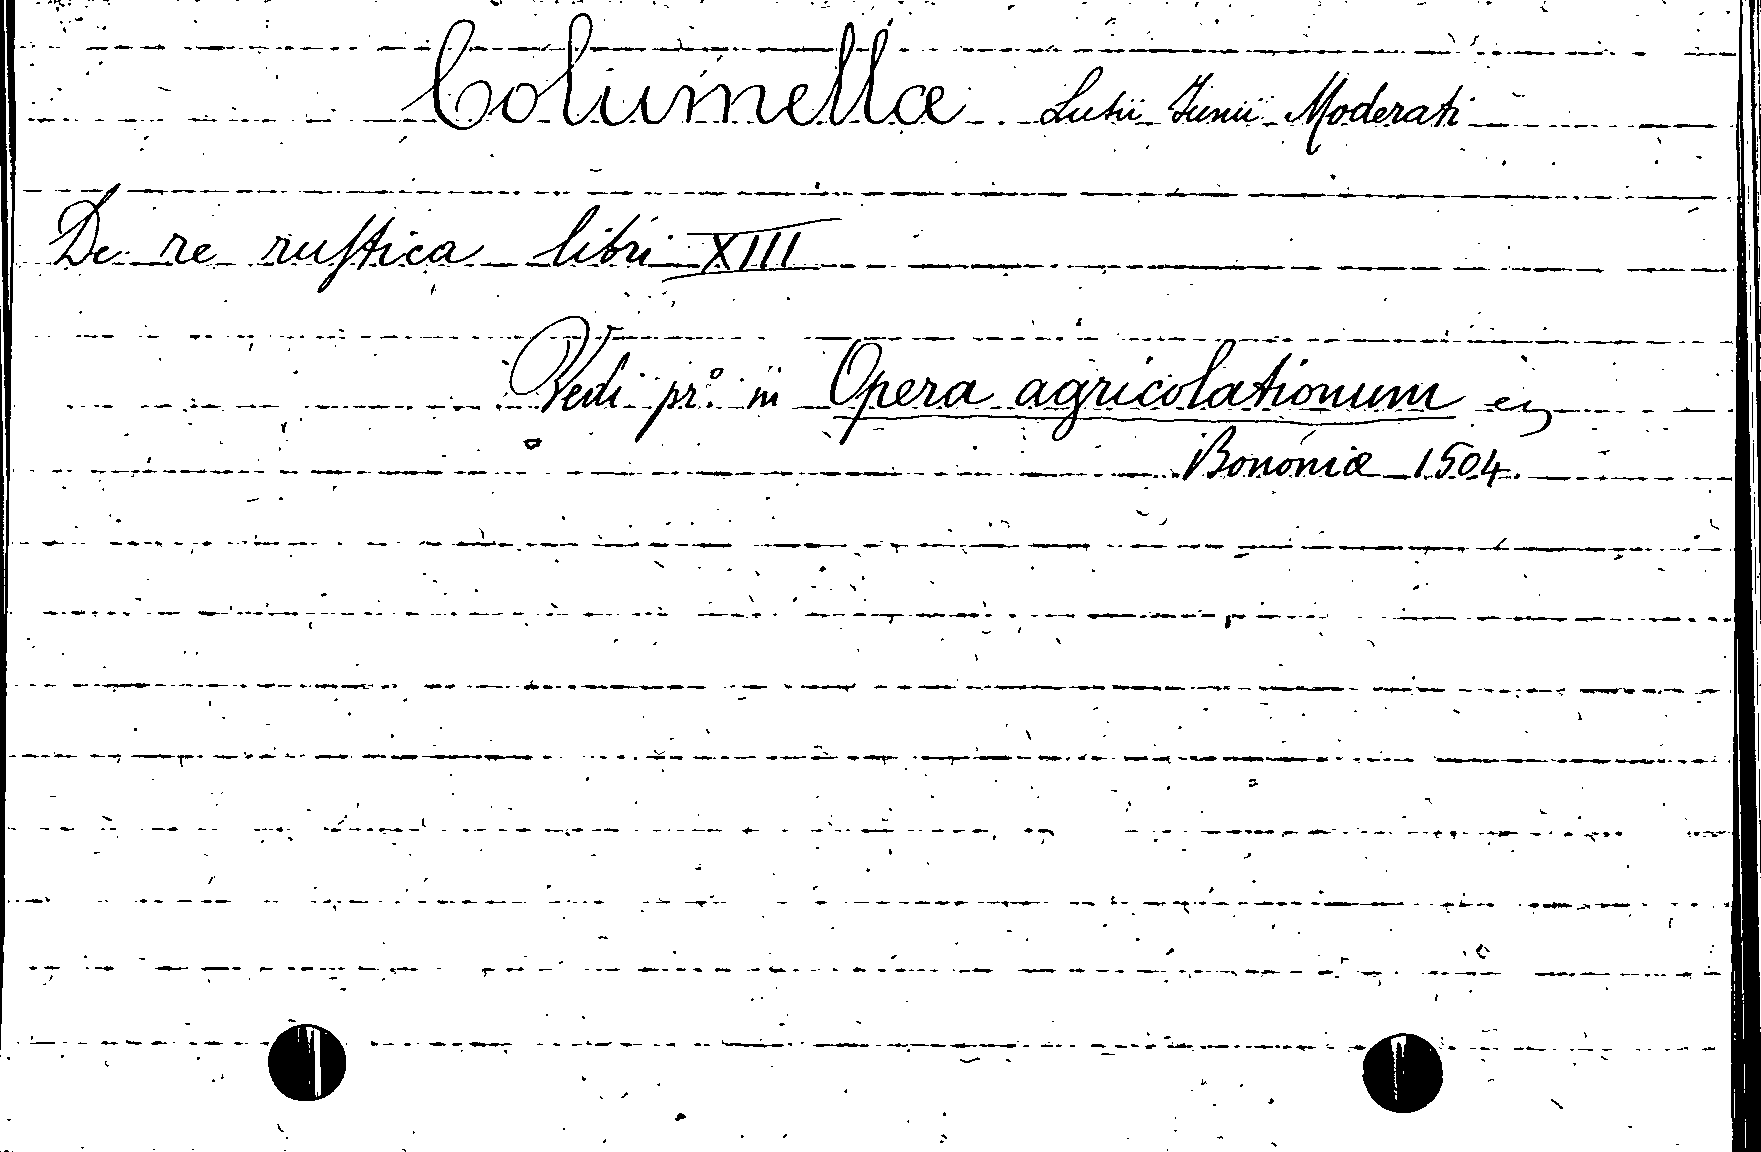 Columellæ Lutii Junii Moderati
De re rustica libri XIII
Vedi pr.º in Opera agricolationum
Bononiæ 1504.